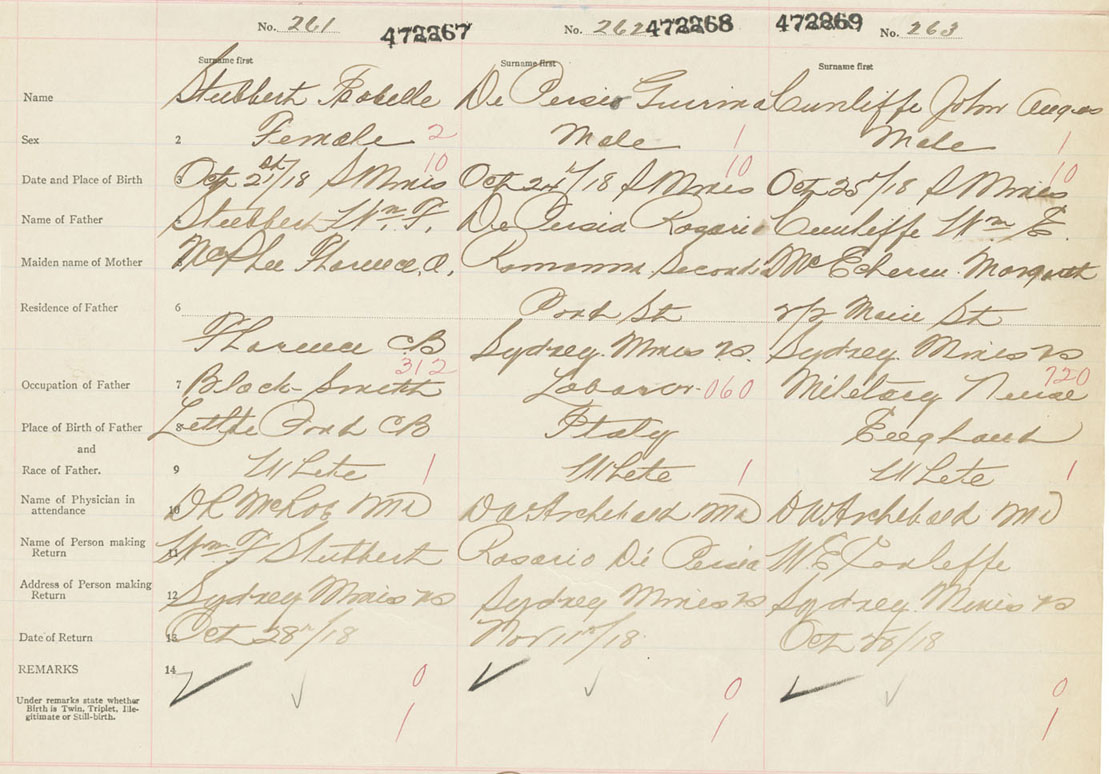 No. 261 472267 No. 262 472268 472269 No. 263
Surname first Surname first Surname first
Name Stubbert Isabelle De Persio Gurino Cunliffe John Angus
Sex 2 Female 2 Male 1 Male 1
10 10 10
Date and Place of Birth 3 Oct 21st/18 S Mines Oct 24th/18 S Mines Oct 25th/18 S Mines
Name of Father 4 Stubbert Wm. F. De Persia Rosario Cunliffe Wm E.
Maiden name of Mother 5 McPhee Florence A. Secondi Mc Echern Margaret
Residence of Father 6 Pond St Main St
Florence CB Sydney Mines NS Sydney Mines NS
312 720
Occupation of Father 7 Black-Smith Laborer 060 Military
Place of Birth of Father 8 Little Pond CB Italy England
and
Race of Father. 9 White 1 White 1 White 1
Name of Physician in
attendance 10 MD D W Archibald MD D W Archibald MD
Name of Person making
Return 11 Wm F Stubbert Rosario De Persia W. E Cunliffe
Address of Person making
Return 12 Sydney Mines NS Sydney Mines NS Sydney Mines NS
Date of Return 13 Oct 28th/18 Nov 11th/18 Oct 28/18
REMARKS 14 0 0 0
Under remarks state whether
Birth is Twin, Triplet, Ille-
gitimate or Still-birth. 1 1 1